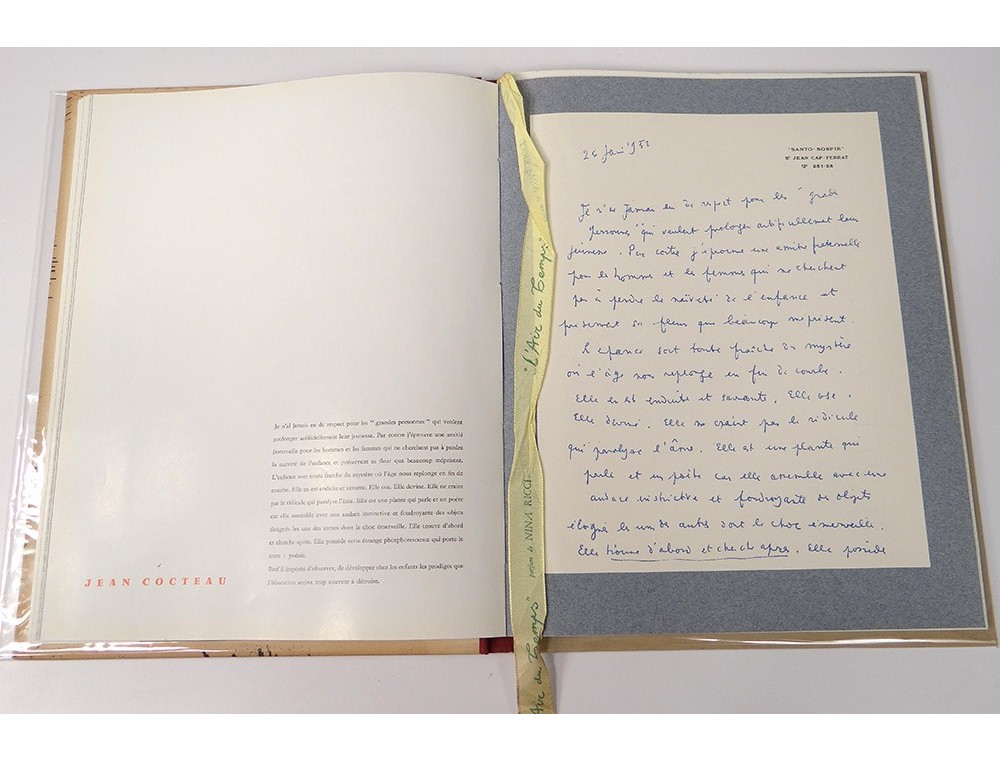 Je n'ai jamais eu de respect pour les "grandes personnes" qui veulent
prolonger artificiellement leur jeunesse. Par contre j'éprouve une amitié
fraternelle pour les hommes et les femmes qui ne cherchent pas à perdre
la naïveté de l'enfance et préservent sa fleur que beaucoup méprisent.
L'enfance sort toute fraîche du mystère où l'âge nous replonge en fin de
courbe. Elle en est enduite et savante. Elle ose. Elle devine. Elle ne craint
pas le ridicule qui paralyse l'âme. Elle est une plante qui parle et un poète
car elle assemble avec une audace instinctive et foudroyante des objets
éloignés les uns des autres dont le choc émerveille. Elle trouve d'abord
et cherche après. Elle possède cette étrange phosphorescence qui porte le
nom : poésie.
Bref il importe d'observer, de développer chez les enfants les prodiges que
l'éducation arrive trop souvent à détruire.
JEAN COCTEAU
"L'Air du Temps"
parfum de NINA RICCI
"L'Air du Temps"
"SANTO-SOSPIR"
St JEAN CAP-FERRAT
251-28
Je n'ai jamais eu de respect pour les "grandes
personnes" qui veulent prolonger artificiellement leur
jeunesse. Par contre j'éprouve une amitié fraternelle
pour les hommes et les femmes qui ne cherchent
pas à perdre la naïveté de l'enfance et
préservent sa fleur que beaucoup méprisent.
L'enfance sort toute fraîche du mystère
où l'âge nous replonge en fin de courbe.
Elle en est enduite et savante. Elle ose.
Elle devine. Elle ne craint pas le ridicule
qui paralyse l'âme. Elle est une plante qui
parle et un poète car elle assemble avec une
audace instinctive et foudroyante des objets
éloignés les uns des autres dont le choc émerveille.
Elle trouve d'abord et cherche après. Elle possède